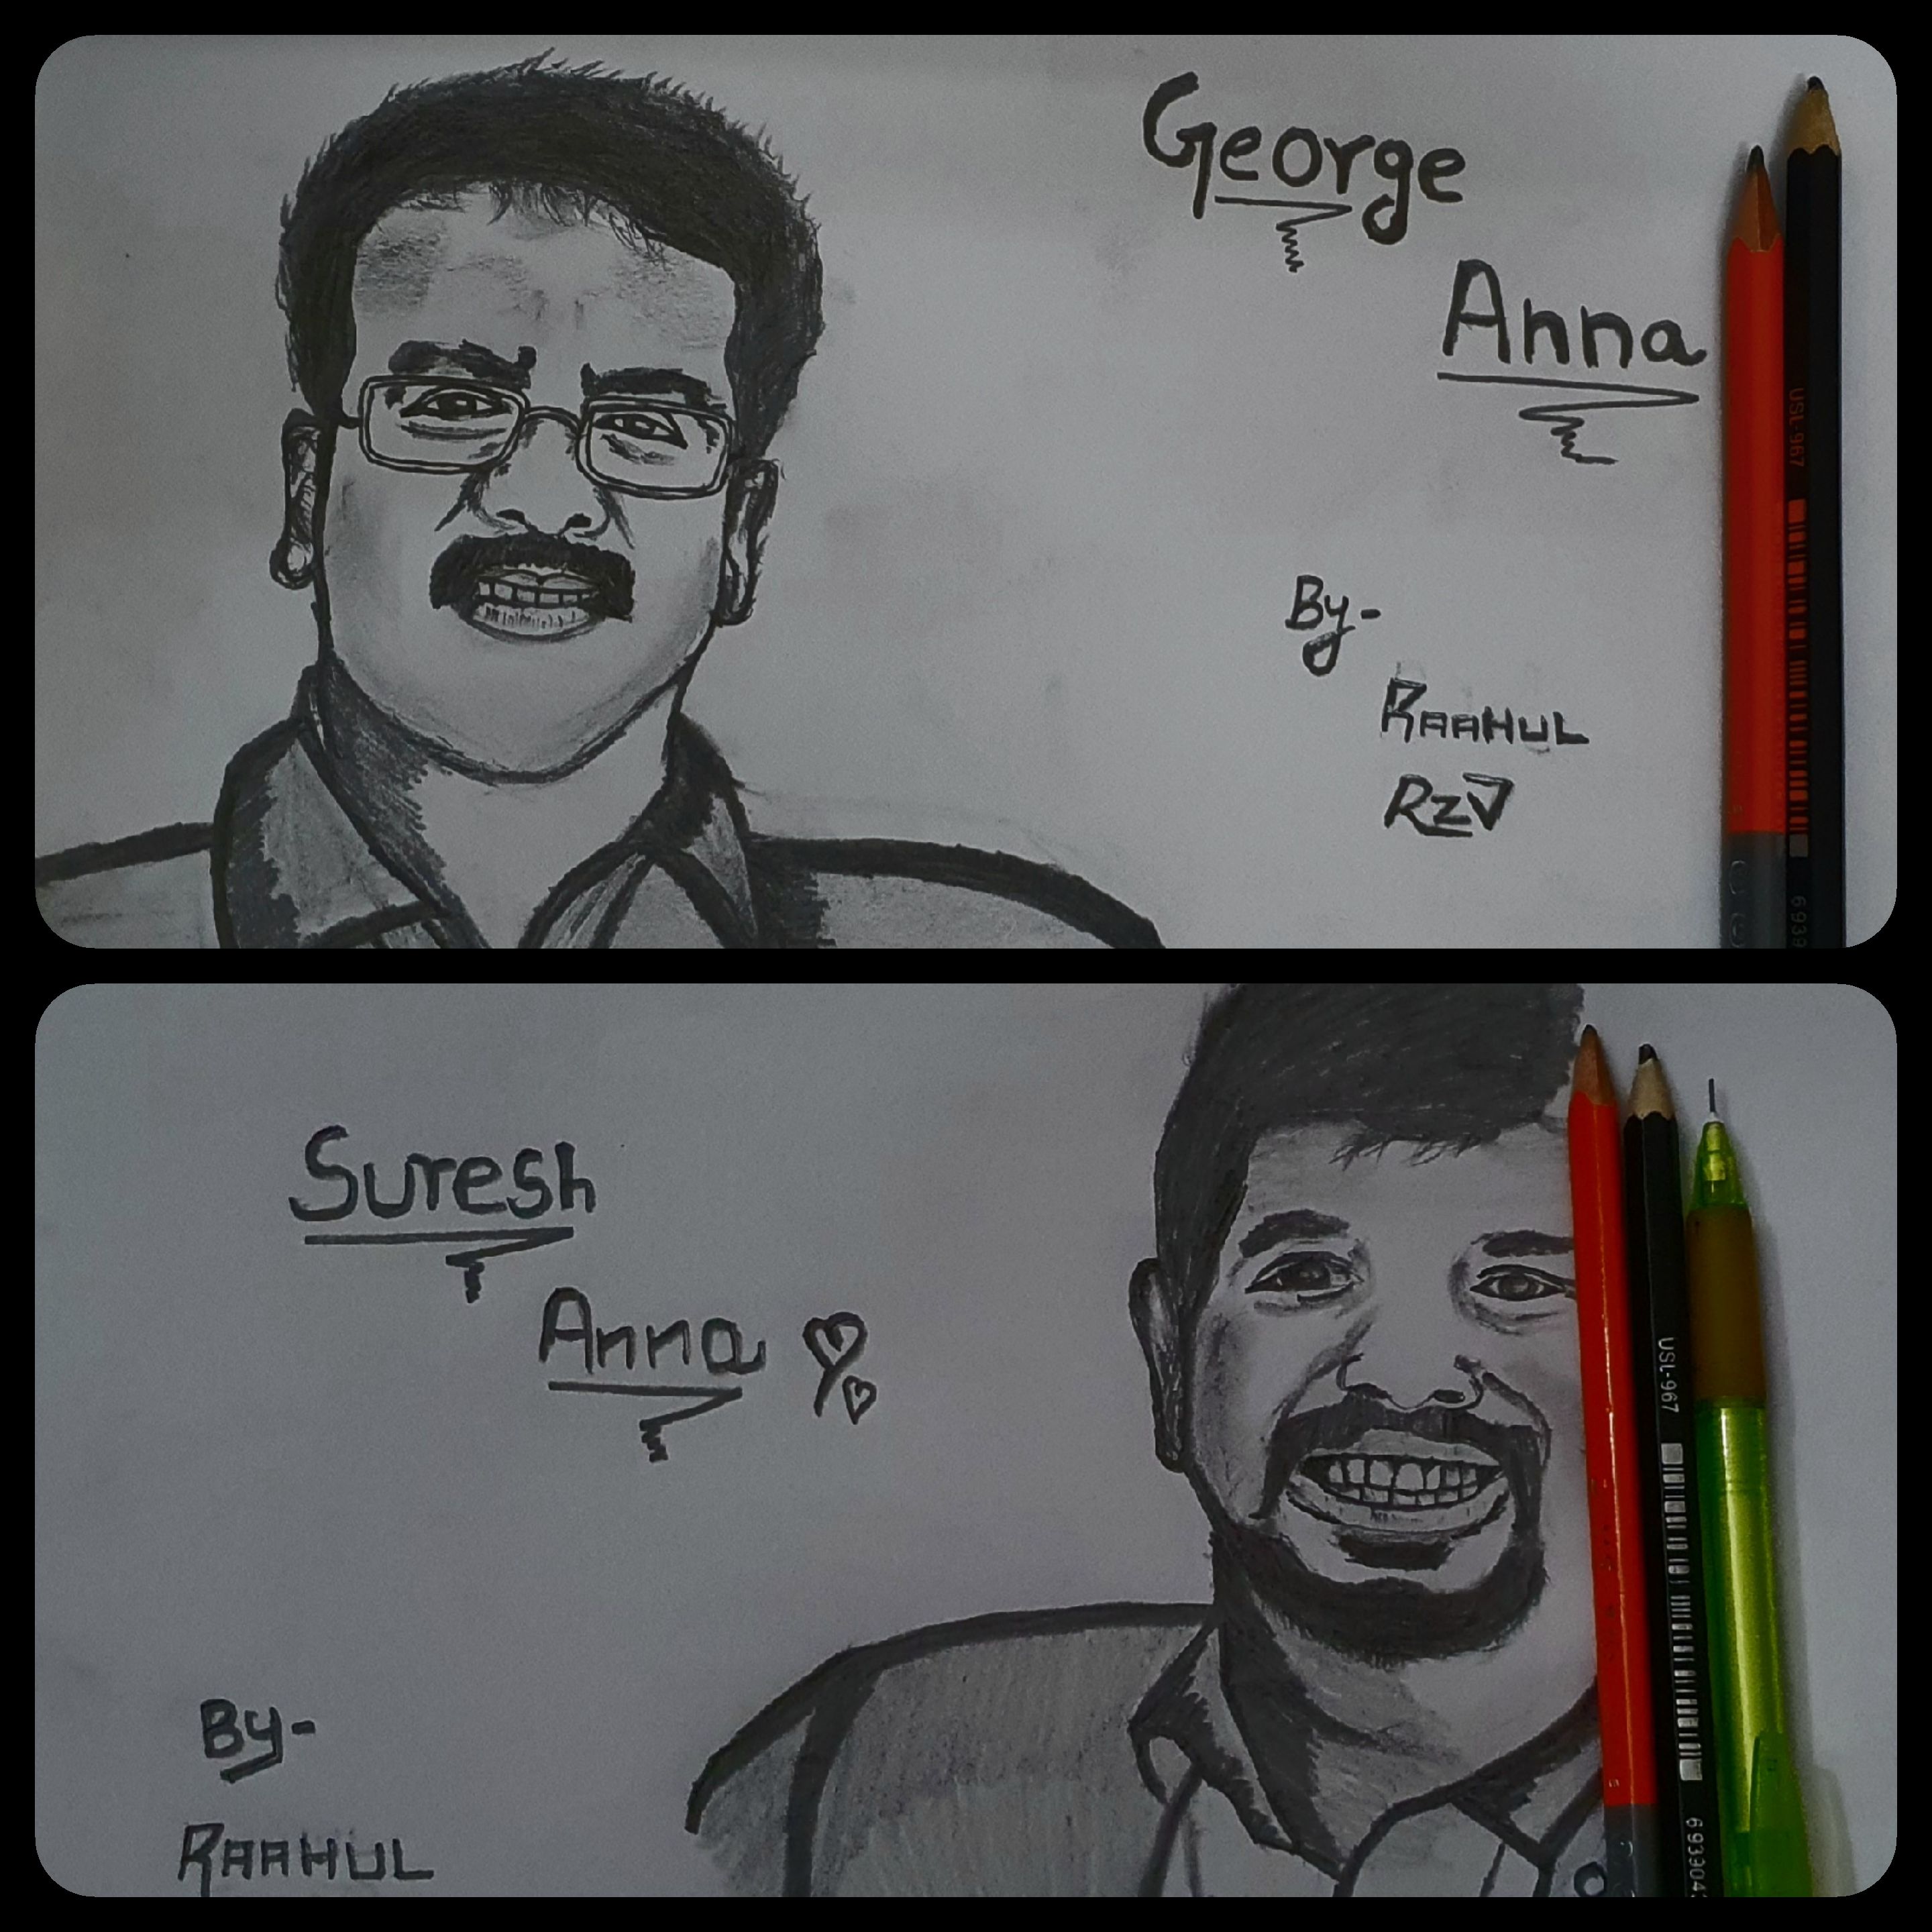 George
Anna
By-
RAAHUL
RZV
USL-967
6939
Suresh
Anna
By-
RAAHUL
USL-967
693904